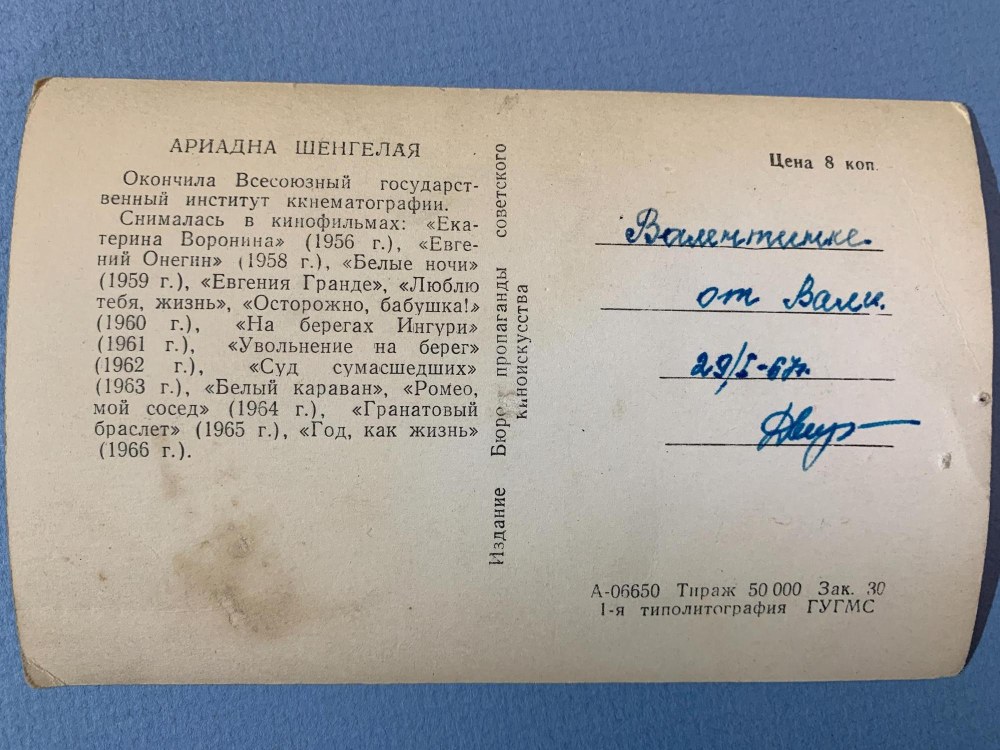 АРИАДНА ШЕНГЕЛАЯ
Окончила Всесоюзный государст-
венный институт ккнематографии.
Снималась в кинофильмах: «Ека-
терина Воронина» (1956 г.), «Евге-
ний Онегин» (1958 г.), «Белые ночи»
(1959 г.), «Евгения Гранде», «Люблю
тебя, жизнь», «Осторожно, бабушка!»
(1960 г.), «На берегах Ингури»
(1961 г.), «Увольнение на берег»
(1962 г.), «Суд сумасшедших»
(1963 г.), «Белый караван», «Ромео,
мой сосед» (1964 г.), «Гранатовый
браслет» (1965 г.), «Год, как жизнь»
(1966 г.).
Издание Бюро пропаганды советского
киноискусства
Цена 8 коп.
Валентинке.
от Вали.
29/I-67г.
А-06650 Тираж 50 000 Зак. 30
1-я типолитография ГУГМС